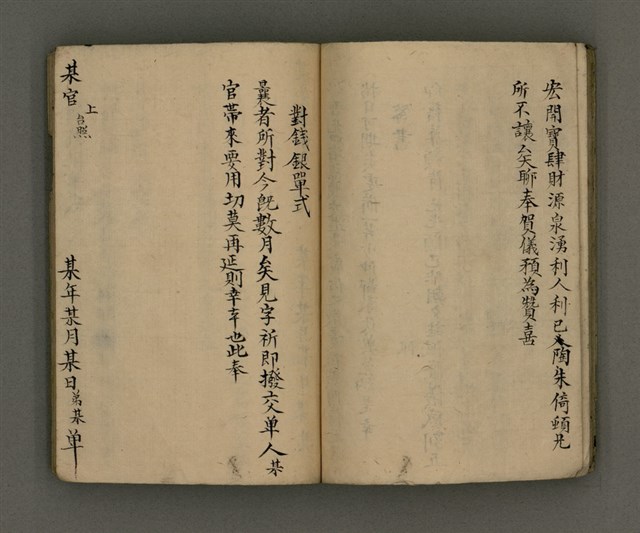 宏開寶肆財源泉湧利人利己陶朱倚頓凡
所不讓矣聊奉賀儀預為贊喜
對錢銀單式
曩者所對今既數月矣見字祈即撥交单人某
官帶來要用切莫再延則幸幸也此奉
某官上台照
某年某月某日弟某单